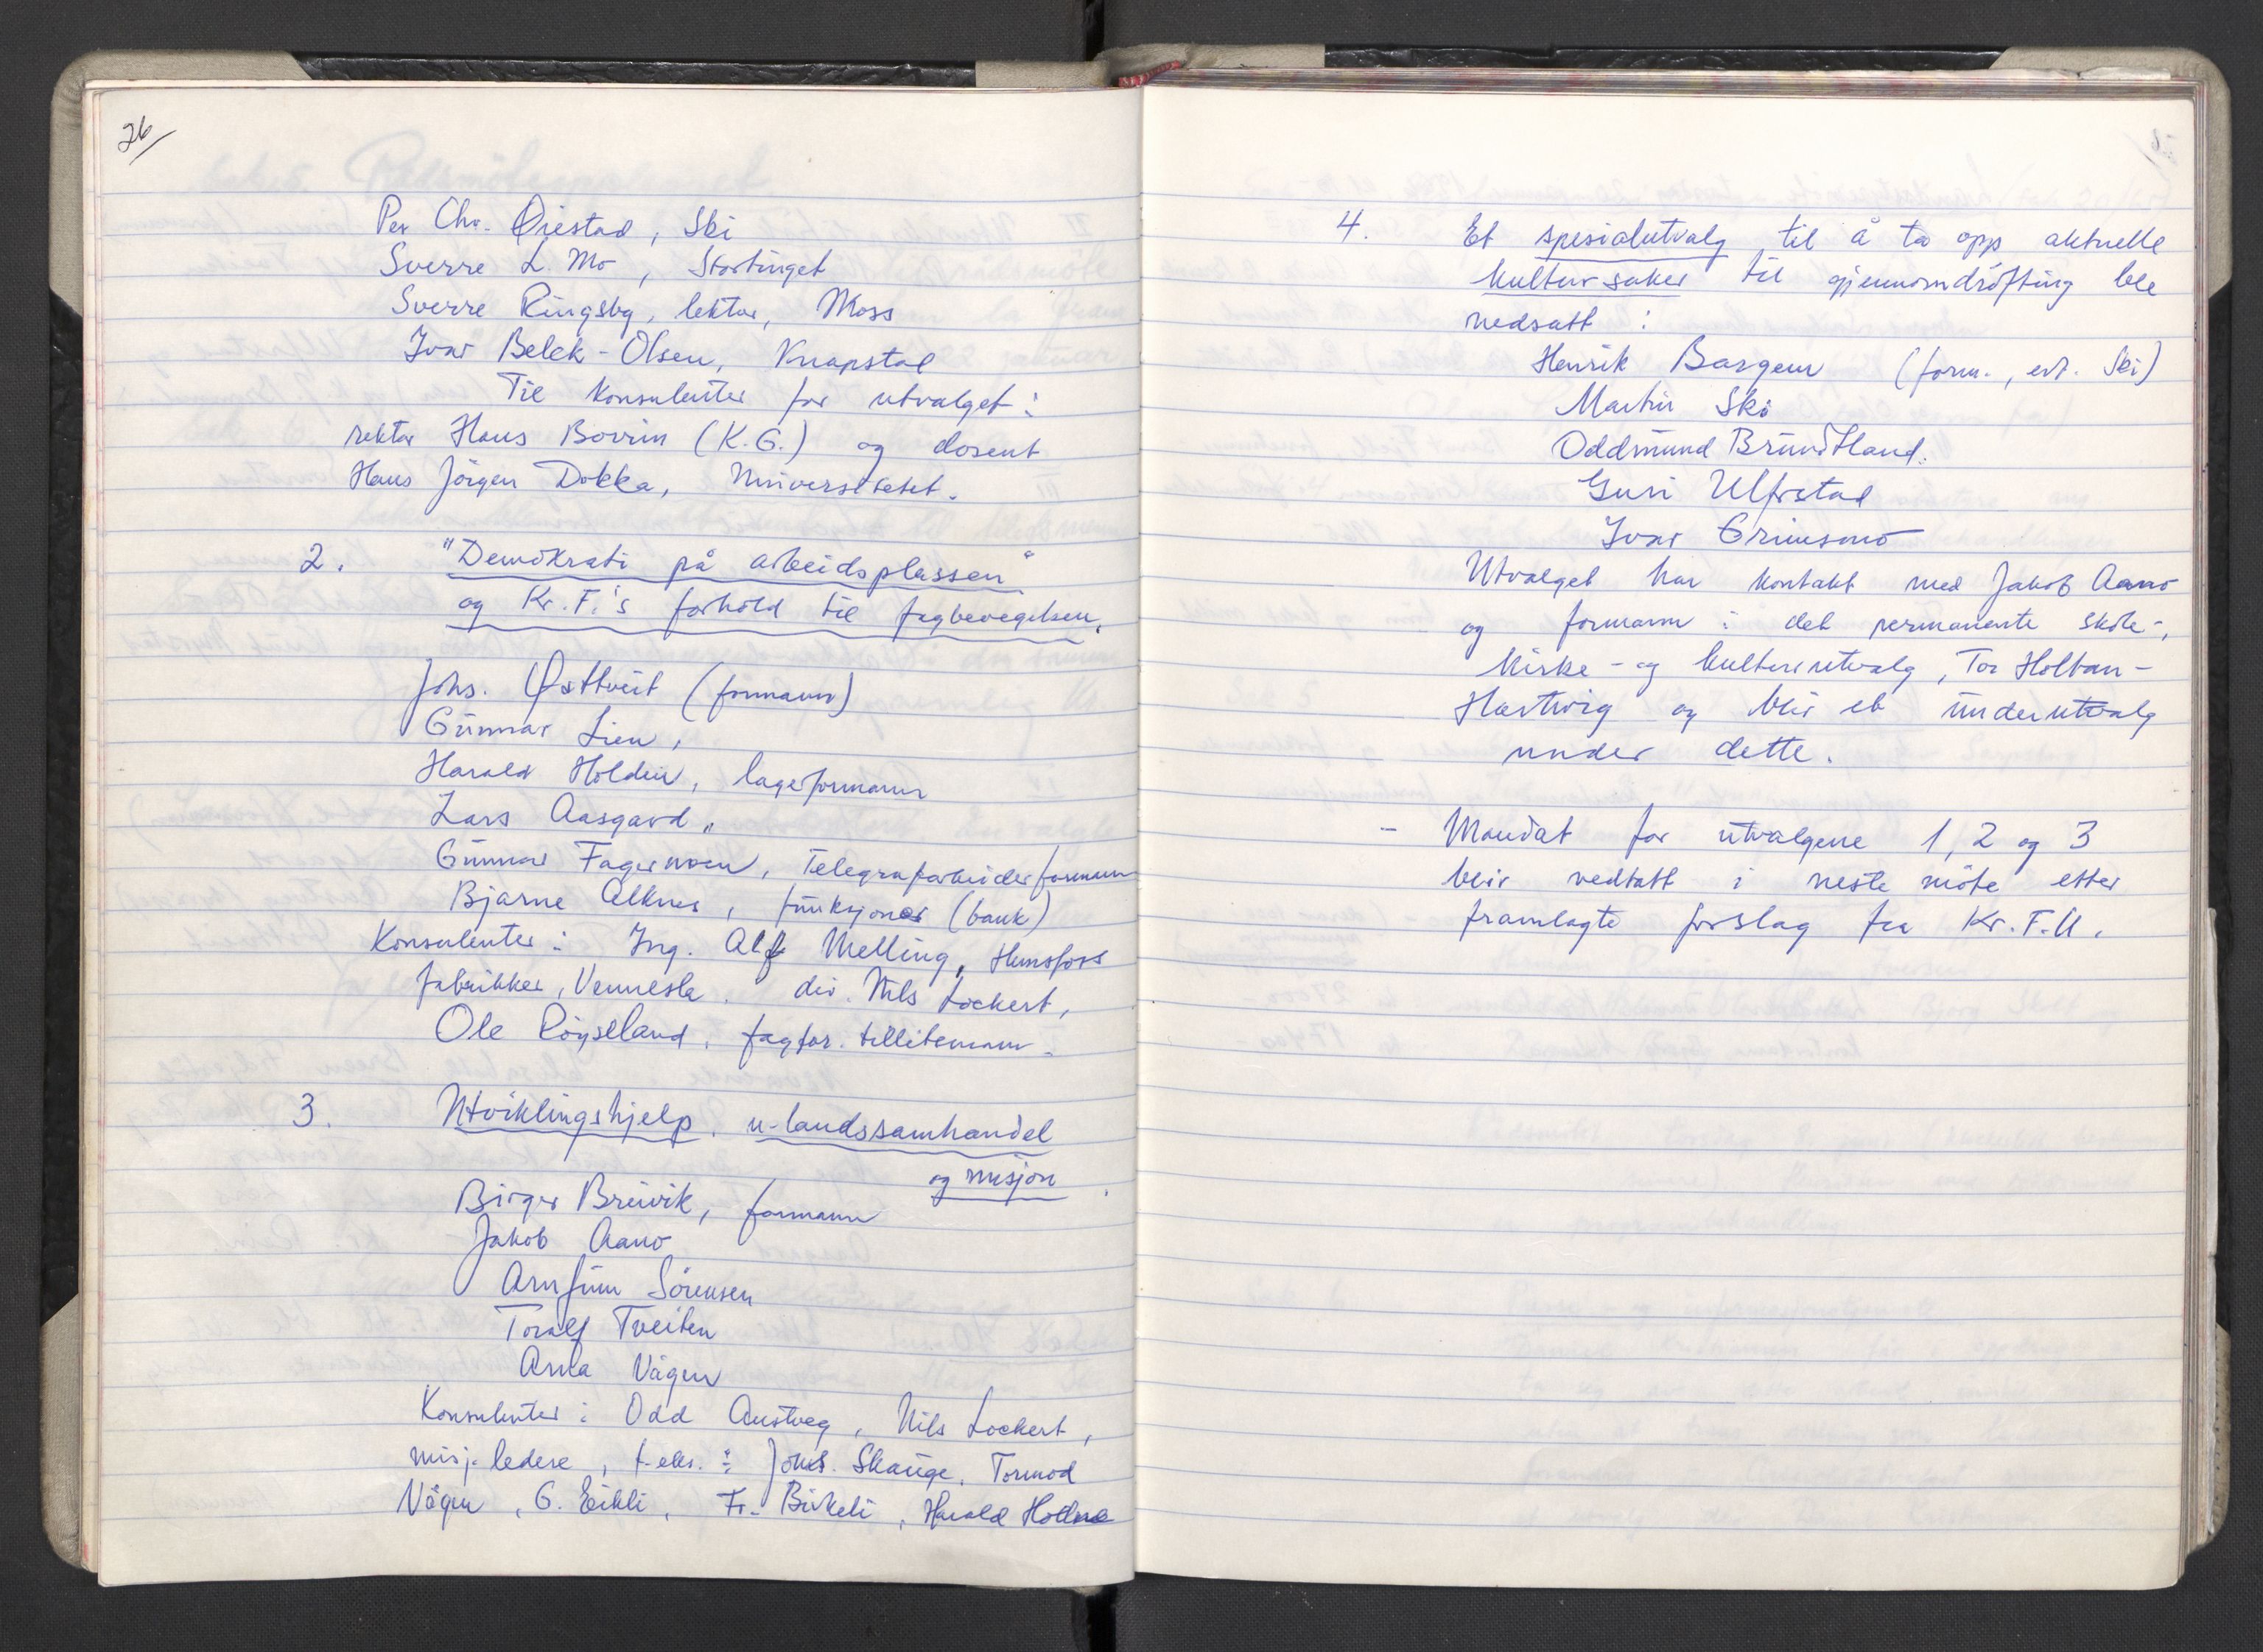 26
Per Chr. Øiestad, Ski
Sverre L. Mo, Stortinget
Sverre Ringsby, lektor, Moss
Ivar Belek-Olsen, Knapstad
Til konsulenter for utvalget:
rektor Hans Bovim (K.G.) og dosent
Hans Jörgen Dokka, Universitetet.
2. "Demokrati på arbeidsplassen"
og Kr.F.'s forhold til fagbevegelsen.
Johs. Østtveit (formann)
Gunnar Lien,
Harald Holden, lagerformann
Lars Aasgard,,
Gunnar Fagermoen, Telegrafarbeiderformann
Bjarne Alknes, funksjonær (bank)
Konsulenter: Ing. Alf Melling, Hunsfoss
fabrikker, Vennesla. dir. Nils Lockert,
Ole Röysland, fagfor. tillitsmann.
3. Utviklingshjelp, u-landssamhandel
og misjon.
Birger Breivik, formann
Jakob Aano
Arnfinn Sörensen
Toralf Tveiten
Arna Vågen
Konsulenter: Odd Austveg, Nils Lockert,
misj. ledere, f-eks.: Johs. Skauge, Tormod
Vågen, G. Eikli, Fr. Birkeli, Harald
4. Et spesialutvalg til å ta opp aktuelle
kultursaker til gjennomdröfting ble
nedsatt:
Henrik Bargem (form., evt. Ski)
Martin Ski
Oddmund Brundtland.
Guri Ulfrstad
Ivar Grimsmo
Utvalget har kontakt med Jakob Aano
og formann i det permanente skole-,
kirke- og kulturutvalg, Tor Holtan-
Hartwig og blir et underutvalg
under dette.
- Mandat for utvalgene 1, 2 og 3
blir vedtatt i neste möte etter
framlagte forslag fra Kr.F.U.